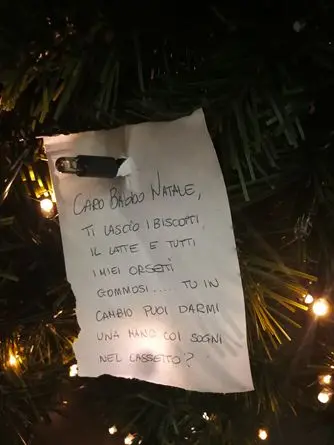 CARO BABBO NATALE,
TI LASCIO I BISCOTTI
IL LATTE E TUTTI
I MIEI ORSETTI
GOMMOSI..... TU IN
CAMBIO PUOI DARMI
UNA MANO COI SOGNI
NEL CASSETTO?